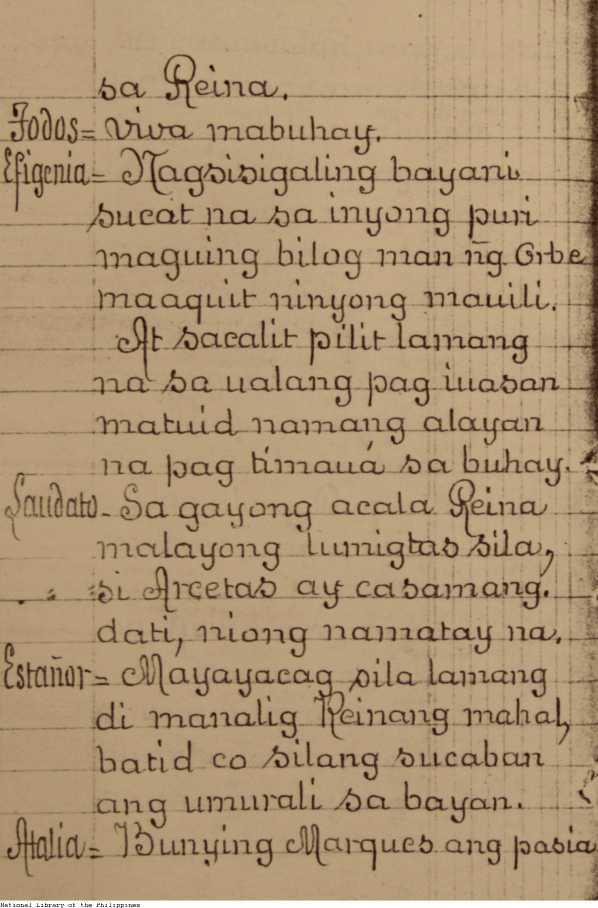 sa Reina.
Todos= Viva mabuhay.
Efigenia= Nagsisigaling bayani
sucat na sa inyong puri
maguing bilog man n͠g Orbe
maaquit ninyong mauili.
At sacalit pilit lamang
na sa ualang pag iuasan
matuid namang alayan
na pag timauá sa buhay.
Laudato- Sa gayong acala Reina
malayong lumigtas sila,
si Arcetas ay casamang.
dati, niong namatay na.
Estañor= Mayayacag sila lamang
di manalig Reinang mahal,
batid co silang sucaban
ang umurali sa bayan.
Atalia= Bunying Marques ang pasia
National Library of the Philippines